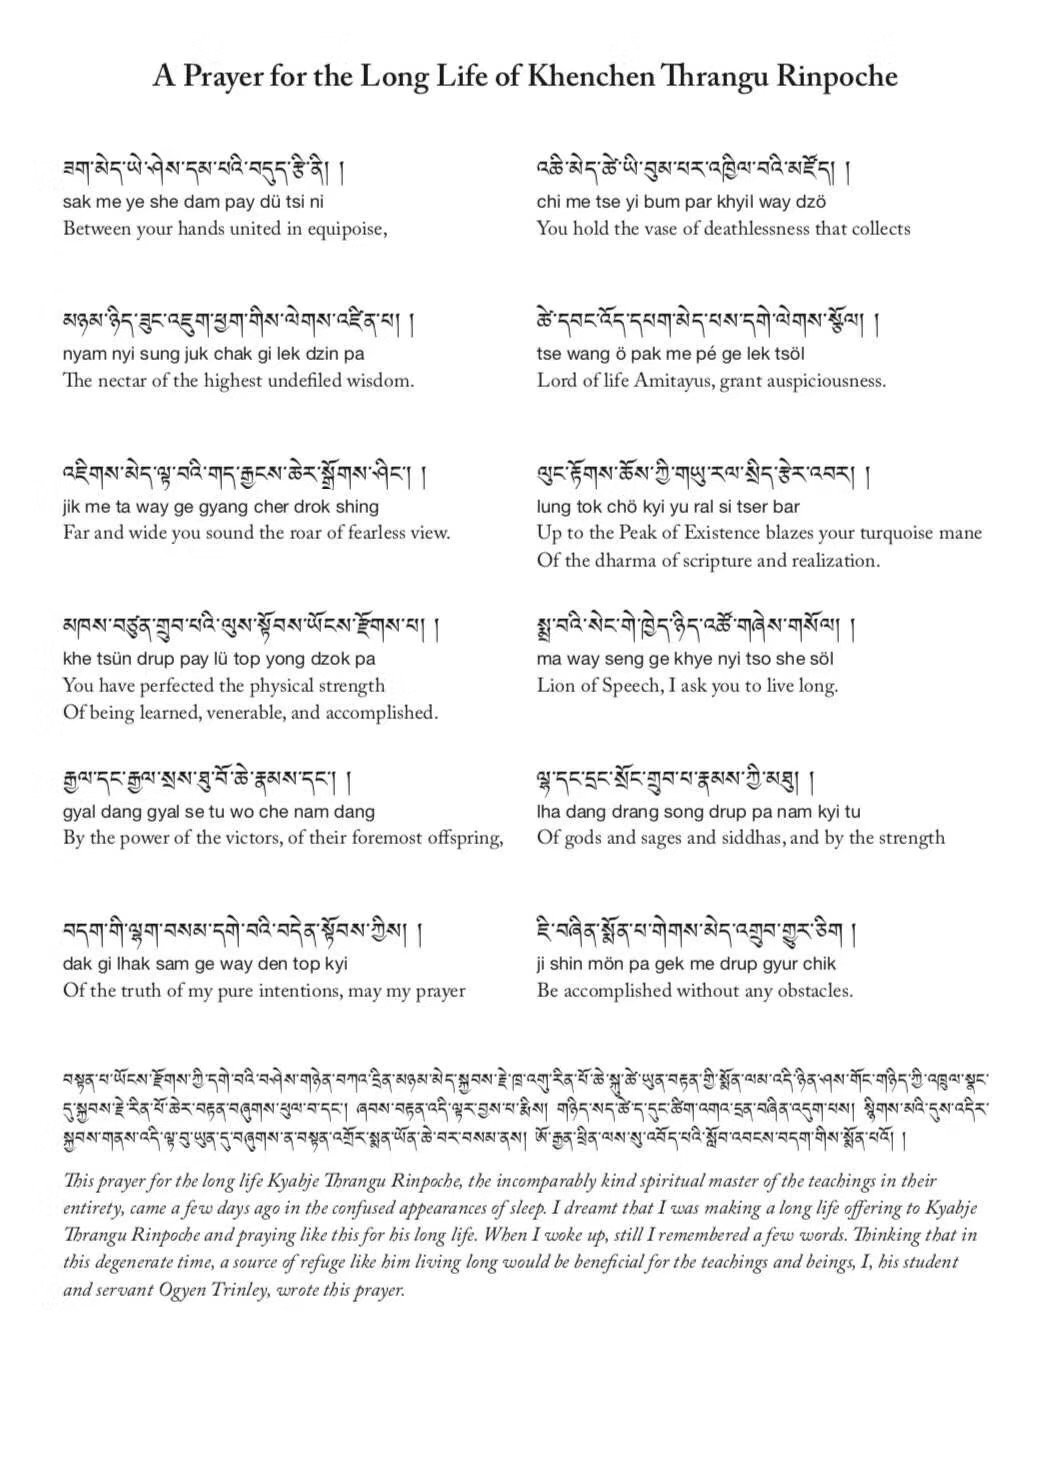 A Prayer for the Long Life of Khenchen Thrangu Rinpoche
ཟག་མེད་ཡེ་ཤེས་དམ་པའི་བདུད་རྩི་ནི། །
sak me ye she dam pay dü tsi ni
Between your hands united in equipoise,
འཆི་མེད་ཚེ་ཡི་བུམ་པར་འཁྱིལ་བའི་མཛོད། །
chi me tse yi bum par khyil way dzö
You hold the vase of deathlessness that collects
མཉམ་ཉིད་ཟུང་འཇུག་ཕྱག་གིས་ལེགས་འཛིན་པ། །
nyam nyi sung juk chak gi lek dzin pa
The nectar of the highest undefiled wisdom.
ཚེ་དབང་འོད་དཔག་མེད་པས་དགེ་ལེགས་སྩོལ། །
tse wang ö pak me pé ge lek tsöl
Lord of life Amitayus, grant auspiciousness.
འཇིགས་མེད་ལྟ་བའི་གད་རྒྱངས་ཆེར་སྒྲོགས་ཤིང་། །
jik me ta way ge gyang cher drok shing
Far and wide you sound the roar of fearless view.
ལུང་རྟོགས་ཆོས་ཀྱི་གཡུ་རལ་སྲིད་རྩེར་འབར། །
lung tok chö kyi yu ral si tser bar
Up to the Peak of Existence blazes your turquoise mane
Of the dharma of scripture and realization.
མཁས་བཙུན་གྲུབ་པའི་ལུས་སྟོབས་ཡོངས་རྫོགས་པ། །
khe tsün drup pay lü top yong dzok pa
You have perfected the physical strength
Of being learned, venerable, and accomplished.
སྨྲ་བའི་སེང་གེ་ཁྱེད་ཉིད་འཚོ་གཞེས་གསོལ། །
ma way seng ge khye nyi tso she söl
Lion of Speech, I ask you to live long.
རྒྱལ་དང་རྒྱལ་སྲས་ཐུ་བོ་ཆེ་རྣམས་དང་། །
gyal dang gyal se tu wo che nam dang
By the power of the victors, of their foremost offspring,
ལྷ་དང་དྲང་སྲོང་གྲུབ་པ་རྣམས་ཀྱི་མཐུ། །
lha dang drang song drup pa nam kyi tu
Of gods and sages and siddhas, and by the strength
བདག་གི་ལྷག་བསམ་དགེ་བའི་བདེན་སྟོབས་ཀྱིས། །
dak gi lhak sam ge way den top kyi
Of the truth of my pure intentions, may my prayer
ཇི་བཞིན་སྨོན་པ་གེགས་མེད་འགྲུབ་གྱུར་ཅིག །
ji shin mön pa gek me drup gyur chik
Be accomplished without any obstacles.
བསྟན་པ་ཡོངས་རྫོགས་ཀྱི་དགེ་བའི་བཤེས་གཉེན་བཀའ་དྲིན་མཉམ་མེད་སྐྱབས་རྗེ་ཁྲ་འགུ་རིན་པོ་ཆེ་སྐུ་ཚེ་ཡུན་བརྟན་གྱི་སྨོན་ལམ་འདི་ཉིན་ཤས་གོང་གཉིད་ཀྱི་འཁྲུལ་སྣང་
དུ་སྐྱབས་རྗེ་རིན་པོ་ཆེར་བརྟན་བཞུགས་ཕུལ་བ་དང་། ཞབས་བརྟན་འདི་ལྟར་བྱས་པ་རྨིས། གཉིད་སད་ཚེ་ད་དུང་ཚིག་འགའ་དྲན་བཞིན་འདུག་པས། སྙིགས་མའི་དུས་འདིར་
སྐྱབས་གནས་འདི་ལྟ་བུ་ཡུན་དུ་བཞུགས་ན་བསྟན་འགྲོར་སྨན་ཡོན་ཆེ་བར་བསམ་ནས། ཨོ་རྒྱན་ཕྲིན་ལས་སུ་འབོད་པའི་སློབ་འབངས་བདག་གིས་སྨོན་པའོ། །
This prayer for the long life Kyabje Thrangu Rinpoche, the incomparably kind spiritual master of the teachings in their
entirety, came a few days ago in the confused appearances of sleep. I dreamt that I was making a long life offering to Kyabje
Thrangu Rinpoche and praying like this for his long life. When I woke up, still I remembered a few words. Thinking that in
this degenerate time, a source of refuge like him living long would be beneficial for the teachings and beings, I, his student
and servant Ogyen Trinley, wrote this prayer.